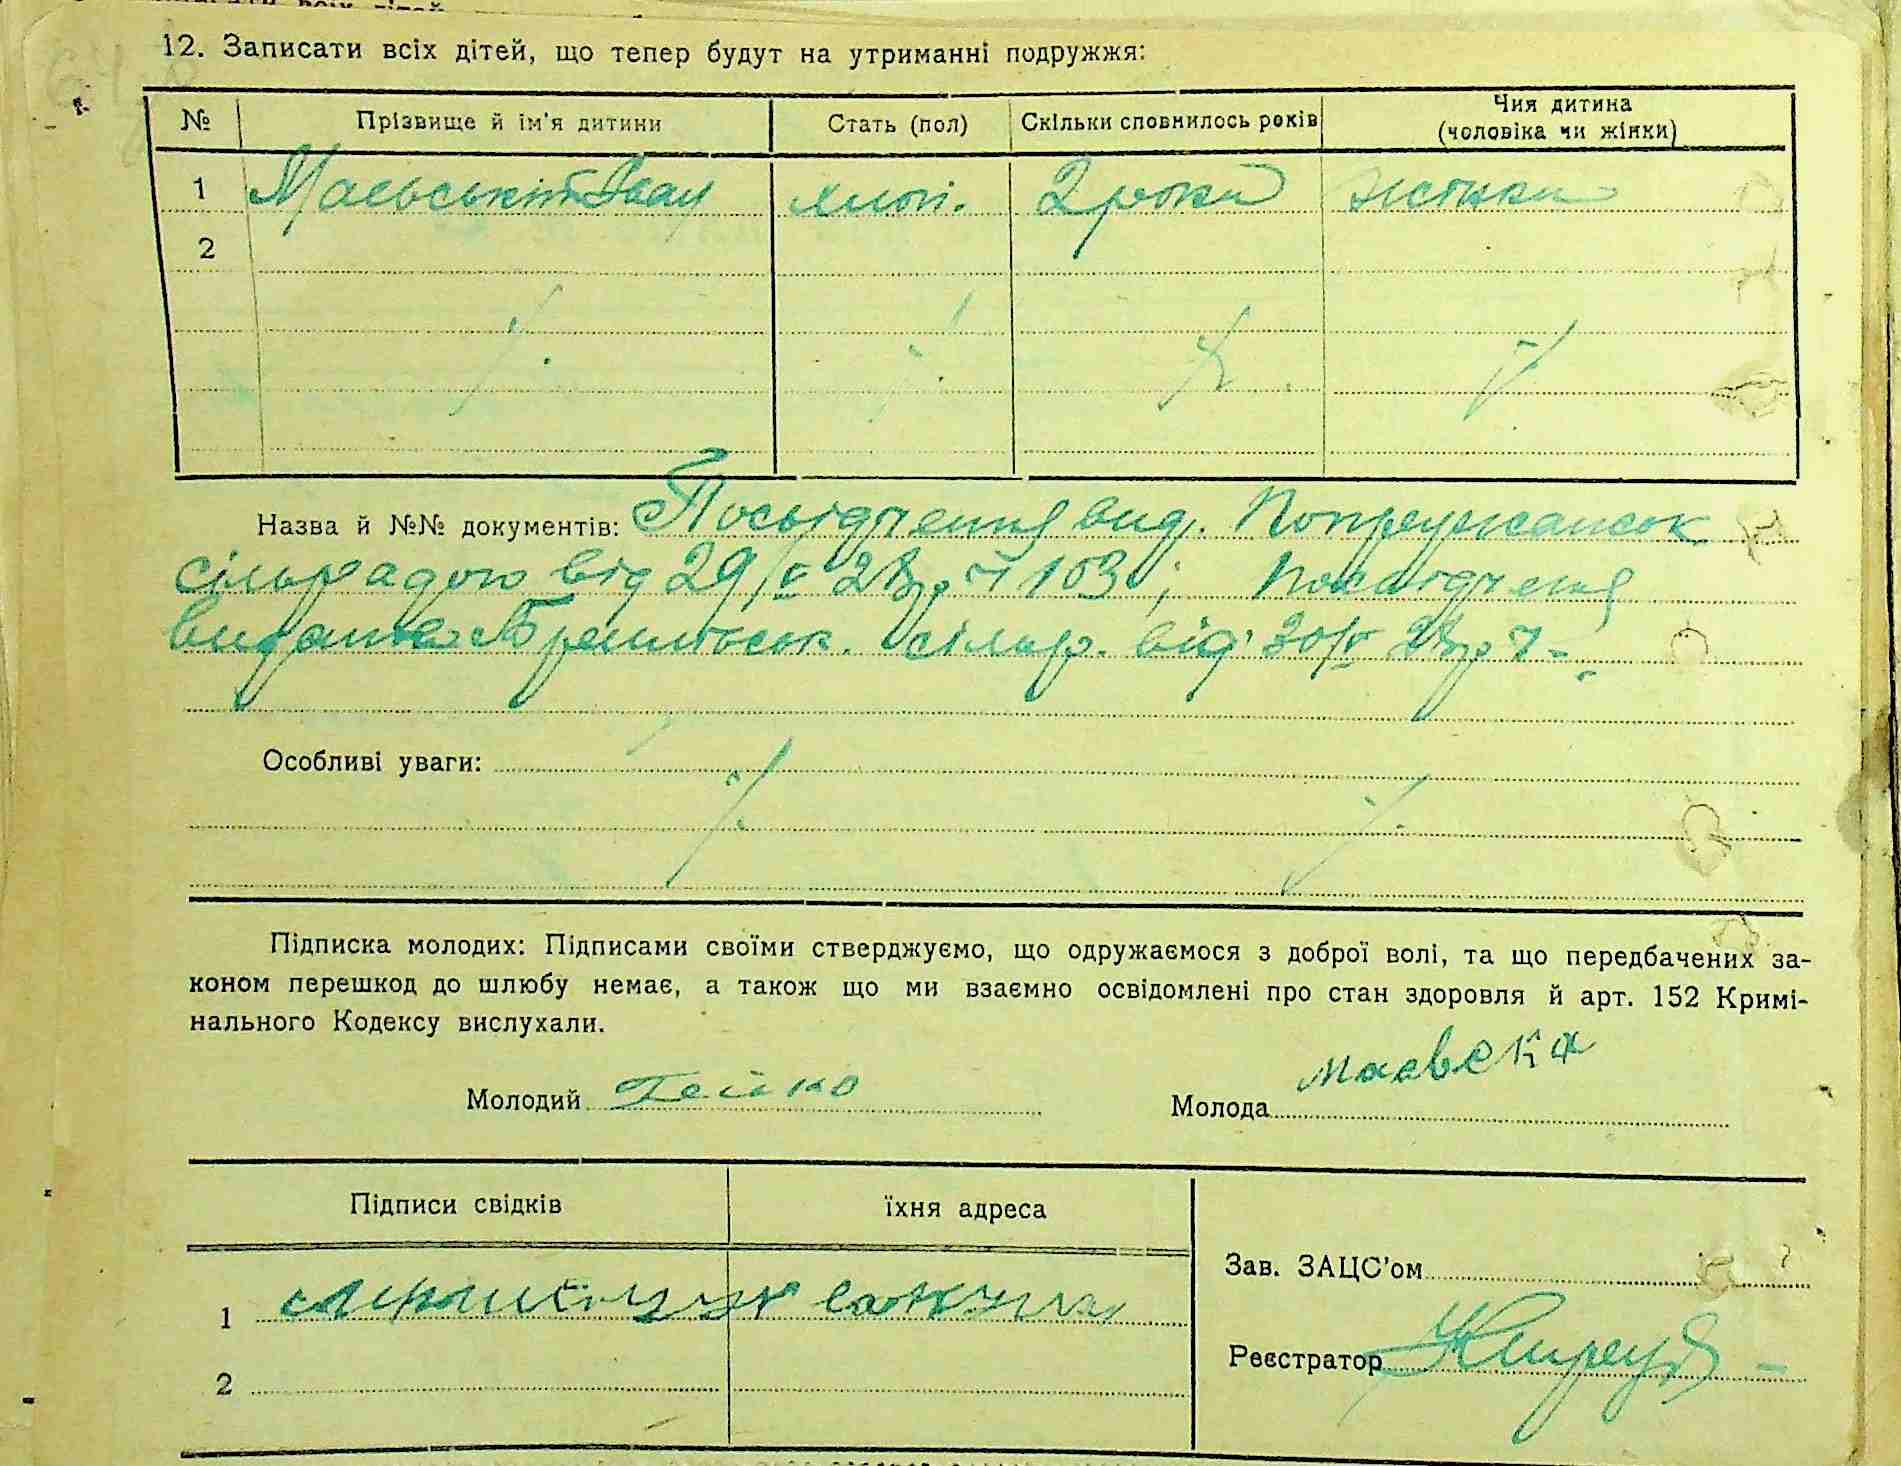 12. Записати всіх дітей, що тепер будут на утриманні подружжя:
№ Прізвище й ім'я дитини Стать (пол) Скільки сповнилось років Чия дитина (чоловіка чи жінки)
1 Маєвський Іван хлоп. 2 роки жінки
2
Назва й №№ документів: Посвідчення вид. Попружанськ
сільрадою від 29/V 28 р. ч 103; Посвідченя
видане сільр. від 30/V 28 р. ч -
Особливі уваги:
Підписка молодих: Підписами своїми стверджуємо, що одружаємося з доброї волі, та що передбачених за-
коном перешкод до шлюбу немає, а також що ми взаємно освідомлені про стан здоровля й арт. 152 Кримі-
нального Кодексу вислухали.
Молодий Гейко Молода Маевска
Підписи свідків їхня адреса
Зав. ЗАЦС'ом
1
Реєстратор
2